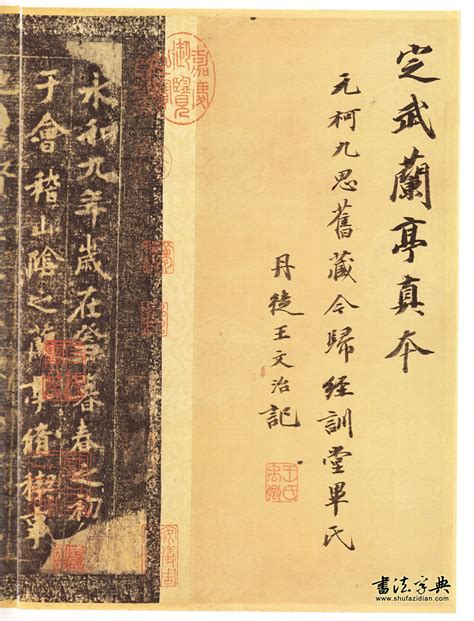 定武蘭亭真本
元柯九思舊藏今歸經訓堂畢氏
丹徒王文治記
王氏禹卿
嘉慶御覽之寶
永和九年歲在癸丑暮春之初
于會稽山陰之蘭亭脩稧事
書法字典
www.shufazidian.com